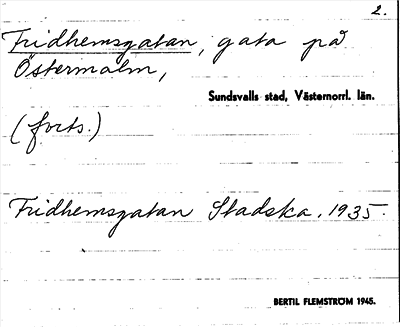 2.
Fridhemsgatan, gata på
Östermalm,
Sundsvalls stad, Västernorrl. län.
(forts.)
Fridhemsgatan Stadska. 1935.
BERTIL FLEMSTRÖM 1945.